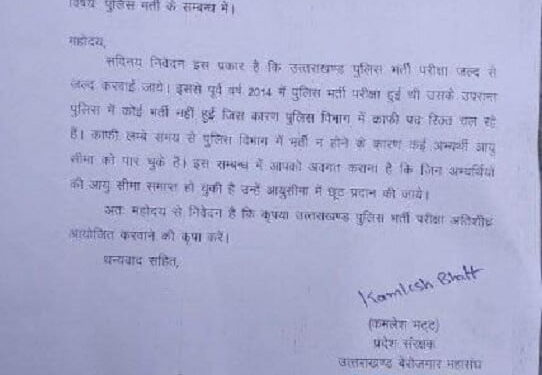 विषय पुलिस भर्ती के सम्बन्ध में।
महोदय,
सविनय निवेदन इस प्रकार है कि उत्तराखण्ड पुलिस भर्ती परीक्षा जल्द से
जल्द करवाई जाये। इससे पूर्व वर्ष 2014 में पुलिस भर्ती परीक्षा हुई थी उसके उपरान्त
पुलिस में कोई भर्ती नहीं हुई जिस कारण पुलिस विभाग में काफी पद रिक्त चल रहे
हैं। काफी लम्बे समय से पुलिस विभाग में भर्ती न होने के कारण कई अभ्यर्थी आयु
सीमा को पार चुके हैं। इस सम्बन्ध में आपको अवगत कराना है कि जिन अभ्यर्थियों
की आयु सीमा समाप्त हो चुकी है उन्हें आयुसीमा में छूट प्रदान की जाये।
अतः महोदय से निवेदन है कि कृपया उत्तराखण्ड पुलिस भर्ती परीक्षा अतिशीघ्र
आयोजित करवाने की कृपा करें।
धन्यवाद सहित,
Kamlesh Bhatt
(कमलेश भट्ट)
प्रदेश संरक्षक
उत्तराखण्ड बेरोजगार महासंघ